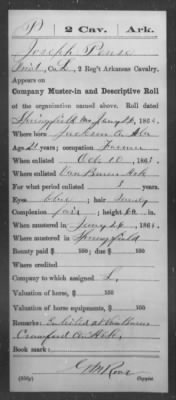 P | 2 Cav. | Ark.
Joseph Pense
Co. L, 2 Reg't Arkansas Cavalry.
Appears on
Company Muster-in and Descriptive Roll
of the organization named above. Roll dated
Springfield Mo Jany 186
Where born Jackson Co
Age 21 years; occupation Farmer
When enlisted Oct 10, 186
Where enlisted Van Buren Ark
For what period enlisted 3 years.
Eyes blue; hair Sandy
Complexion fair; height ft. in.
When mustered in Jany 186
Where mustered in Springfield
Bounty paid $ 100; due $ 100
Where credited
Company to which assigned L.
Valuation of horse, $ 100
Valuation of horse equipments, $ 100
Remarks: Enlisted at Van Buren
Crawford Co Ark.
Book mark:
Copyist.